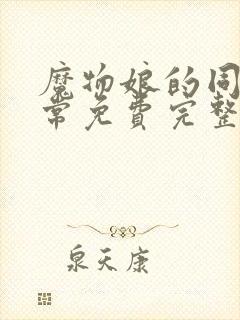 魔物娘的同
常免费完整
泉天康